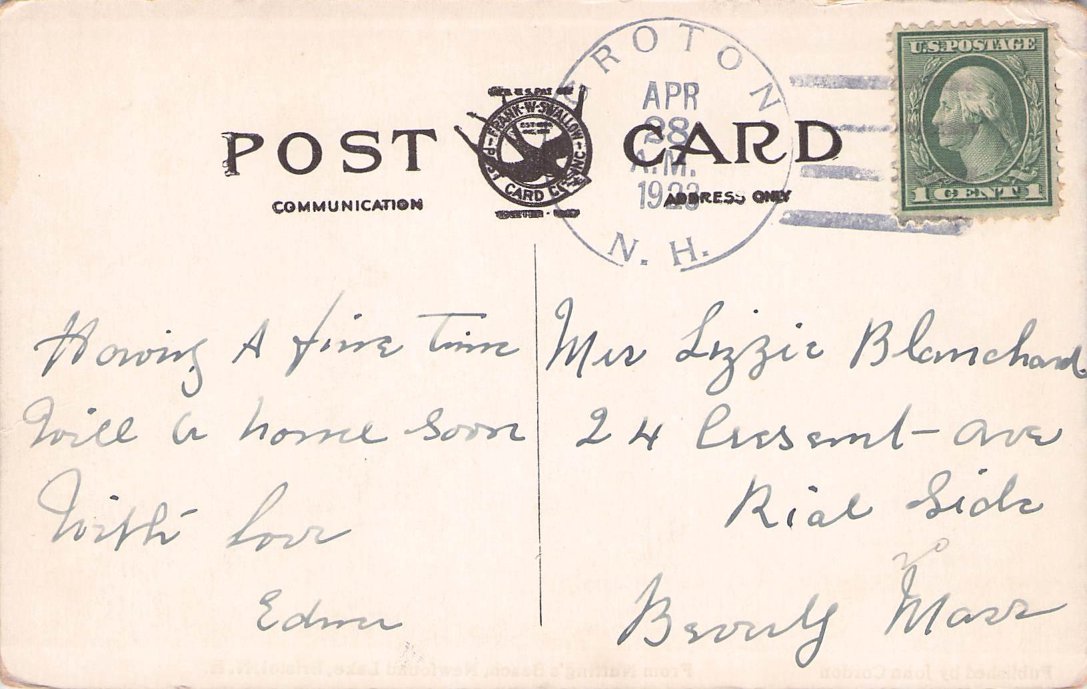 POST CARD
COMMUNICATION
ADDRESS ONLY
FRANK-W-SWALLOW
CARD CO INC
ROTON
APR
28
A.M.
1923
N. H.
U.S. POSTAGE
1 CENT 1
Having A fine Time
Will be home soon
With love
Edna
Mrs Lizzie Blanchard
24 Cresent - ave
Rial Side
Beverly Mass
Published by John Gordon
From Nutting's Beach, Newfound Lake, Bristol, N.H.